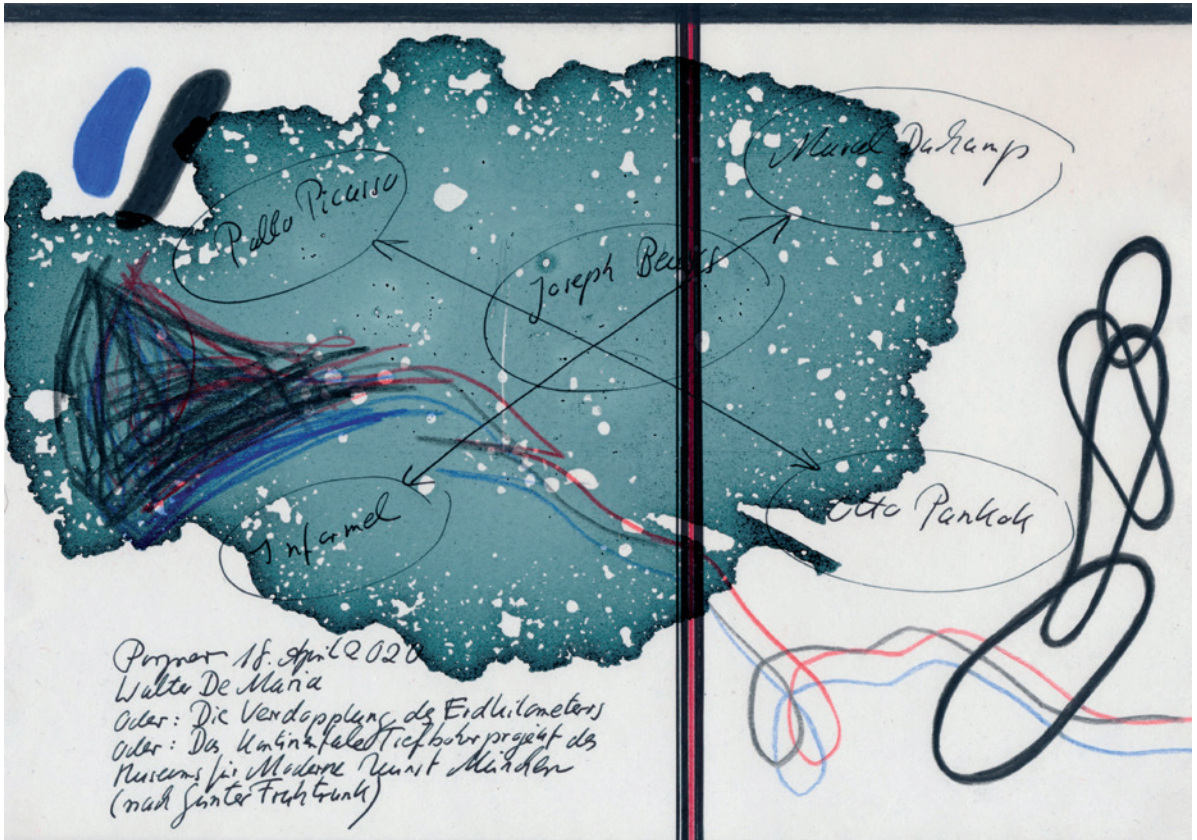 Marcel Duchamp
Pablo Picasso
Joseph Beuys
Informel
Otto Pankok
18. April 2020
Walter De Maria
oder: Die Verdopplung des Erdkilometers
oder: Das Kontinentale Tiefbohrprojekt des
Museums für Moderne Kunst München
(nach Günter Fruhtrunk)